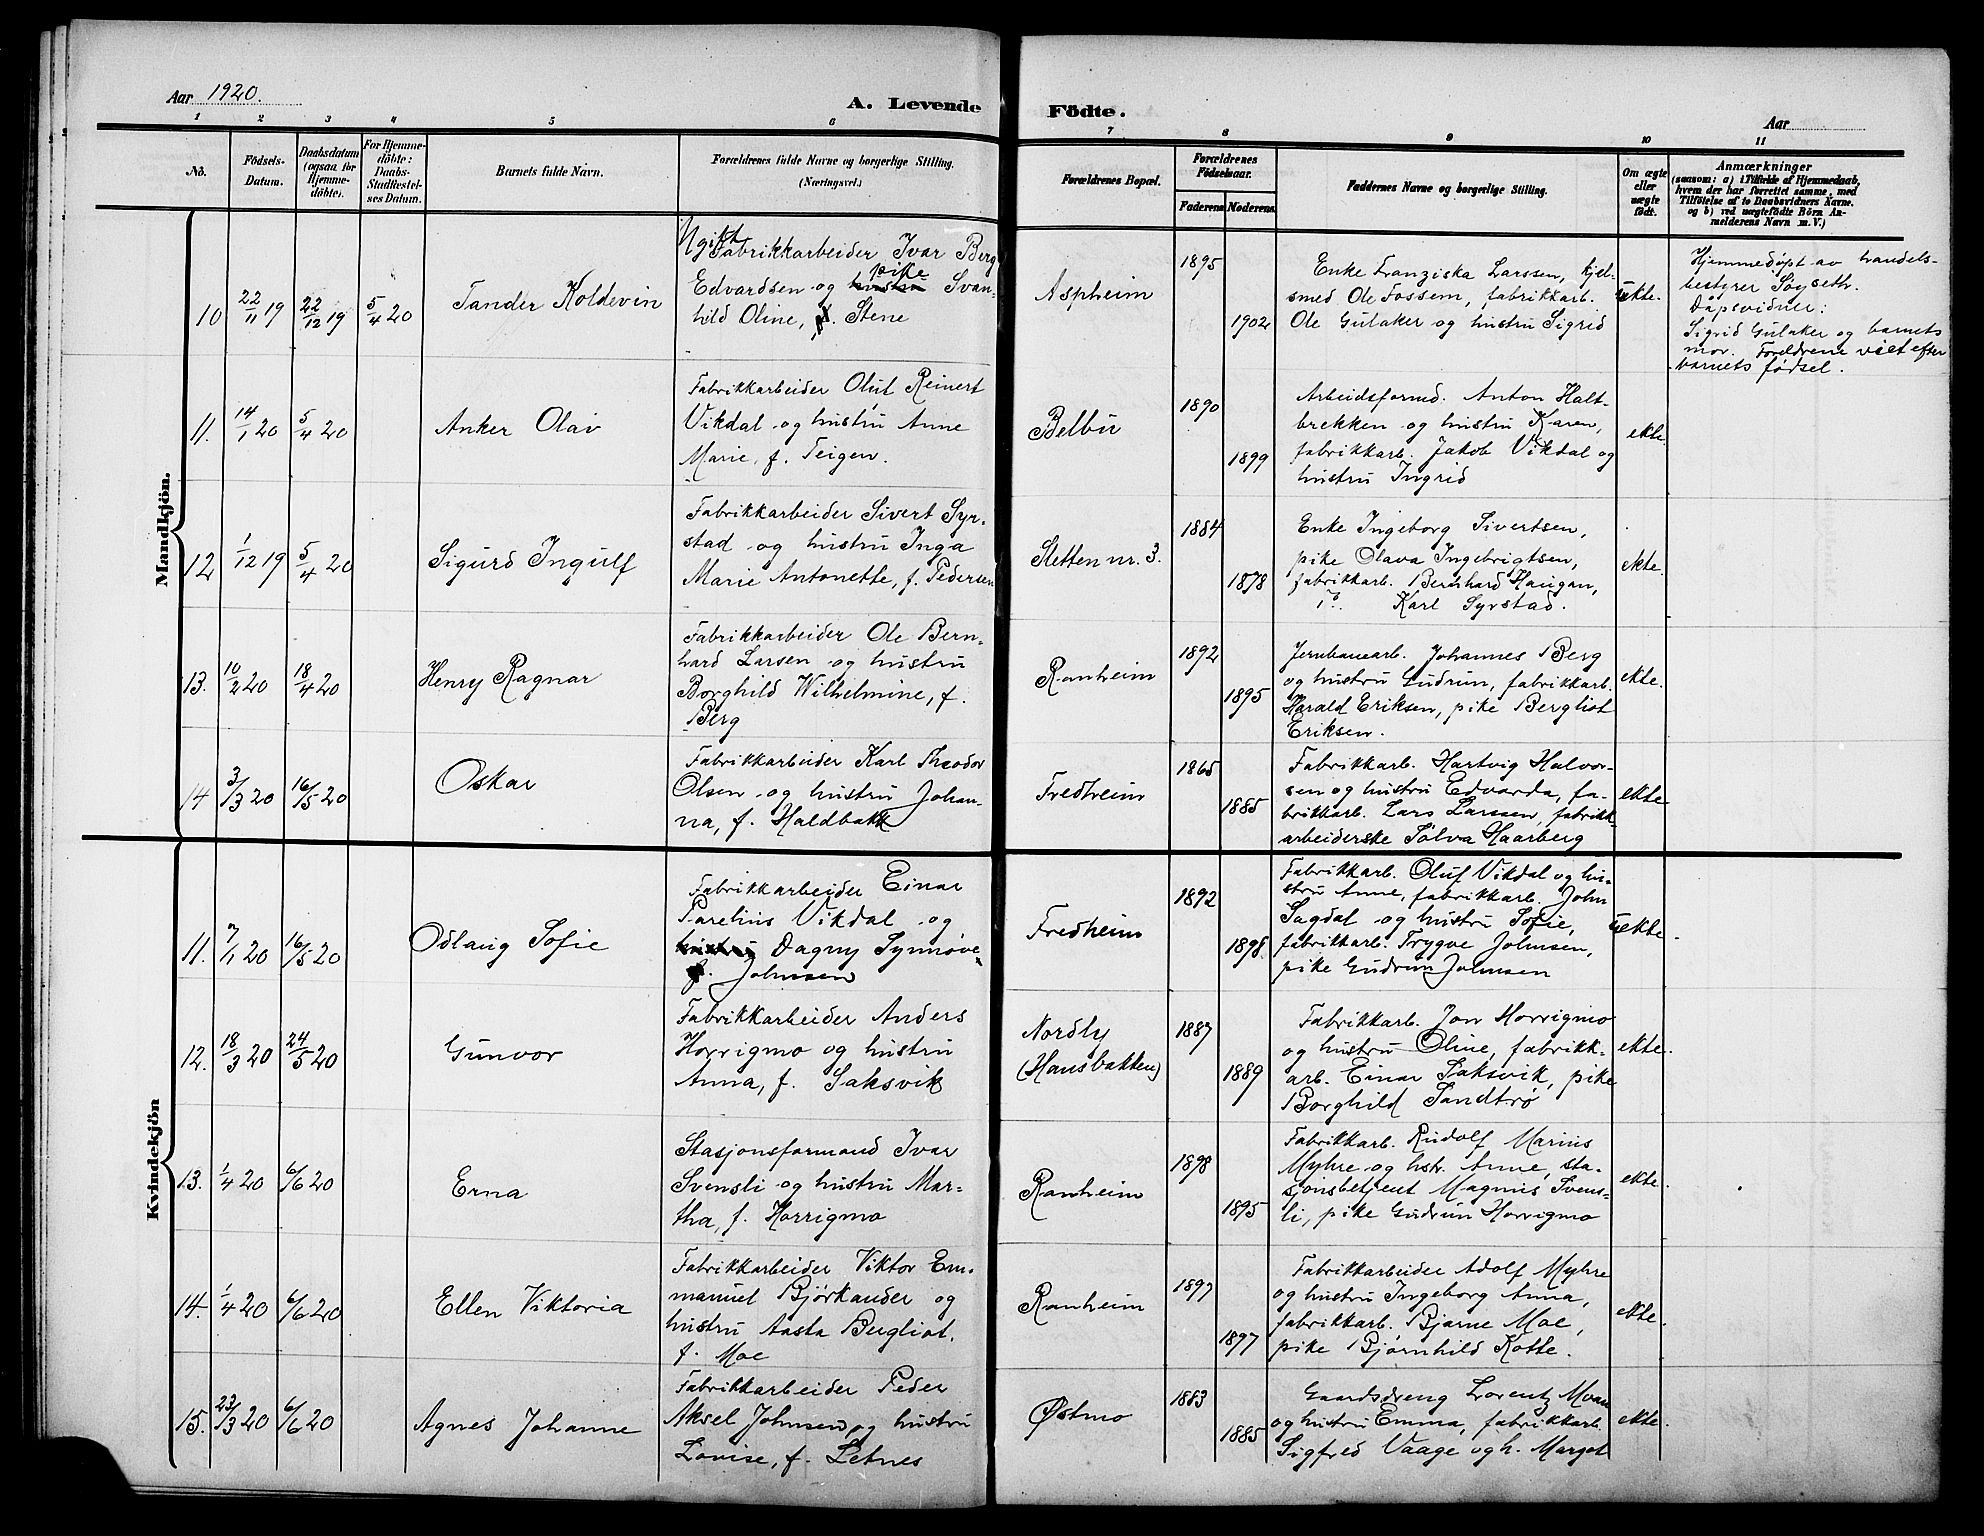 Aar 1920.
A. Levende
1 2 3 4 5 6
No.
Födsels-
Datum.
Daabsdatum
(ogsaa for
Hjemme-
döbte).
For Hjemme-
döbte:
Daabs-
Stadfæstel-
ses Datum.
Barnets fulde Navn.
Forældrenes fulde Navne og borgerlige Stilling.
(Næringsvei.)
Mandkjön.
10 22/11 19 22/12 19 5/4 20 Tander Koldevin
Ugift
Fabrikkarbeider Ivar Berg
pike
Edvardsen og hustru Svan-
hild Oline, f. Stene
11. 14/1 20 5/4 20 Anker Olav
Fabrikkarbeider Oluf Reinert
Vikdal og hustru Anne
Marie, f. Teigen.
12 1/12 19 5/4 20 Sigurd Ingulf
Fabrikkarbeider Sivert Syr-
stad og hustru Inga
Marie Antonette, f. Pedersen
13. 10/2 20 18/4 20 Henry Ragnar
Fabrikkarbeider Ole Bern-
hard Larsen og hustru
Borghild Wilhelmine, f.
Berg
14 3/3 20 16/5 20 Oskar
Fabrikkarbeider Karl Theodor
Olsen og hustru Johan-
na, f. Haldbakk
Kvindekjön
11. 7/1 20 16/5 20 Odlaug Sofie
Fabrikkarbeider Einar
Parelius Vikdal og
hustru Dagny Synnøve
f. Johnsen
12. 18/3 20 24/5 20 Gunvor
Fabrikkarbeider Anders
Horrigmo og hustru
Anna, f. Saksvik
13. 1/4 20 6/6 20 Erna
Stasjonsformand Ivar
Svensli og hustru Mar-
tha, f. Horrigmo
14. 1/4 20 6/6 20 Ellen Viktoria
Fabrikkarbeider Viktor Em-
manuel Bjørkander og
hustru Aasta Bergliot,
f. Moe
15. 23/3 20 6/6 20 Agnes Johanne
Fabrikkarbeider Peder
Aksel Johnsen og hustru
Lovise, f. Letnes
Födte.
Aar
7 8 9 10 11
Forældrenes Bopæl.
Forældrenes
Födselsaar.
Faderens Moderens
Faddernes Navne og borgerlige Stilling.
Om ægte
eller
uægte
födt.
Anmærkninger
(saasom: a) i Tilfælde af Hjemmedaab,
hvem der har forrettet samme, med
Tilföielse af to Daabsvidners Navne.
og b) ved uægtefödte Börn An-
melderens Navn m. V.)
Aspheim 1895 1902
Enke Franziska Larssen, hjel-
smed Ole Fossem, fabrikkarb.
Ole Gulaker og hustru Sigrid
uekte.
Hjemmedøpt av handels-
bestyrer Søyseth.
Dåpsvidner:
Sigrid Gulaker og barnets
mor. Foreldrene viet efter
barnets fødsel.
Belbu 1890 1899
Arbeidsformd. Anton Halt-
brekken og hustru Karen,
fabrikkarb. Jakob Vikdal og
hustru Ingrid
ekte.
Sletten nr. 3. 1884 1878
Enke Ingeborg Sivertsen,
pike Olava Ingebrigtsen,
fabrikkarb. Bernhard Haugan,
do. Karl Syrstad.
ekte.
Ranheim 1892 1895
Jernbanearb. Johannes Berg
og hustru Gudrun, fabrikkarb.
Harald Eriksen, pike Bergliot
Eriksen.
ekte.
Fredheim 1865 1885
Fabrikkarb. Hartvig Halvor-
sen og hustru Edvarda, fa-
brikkarb. Lars Larssen, fabrikk-
arbeiderske Sølva Haarberg
ekte
Fredheim 1892 1898.
Fabrikkarb. Oluf Vikdal og hu-
stru Anne, fabrikkarb. John
Sagdal og hustru Sofie,
fabrikkarb. Trygve Johnsen,
pike Gudrun Johnsen
uekte
Nordly
(Hansbakken) 1887 1889
Fabrikkarb. Jon Horrigmo
og hustru Oline, fabrikk-
arb. Einar Saksvik, pike
Borghild Sandtrø
ekte.
Ranheim 1898 1895
Fabrikkarb. Rudolf Marius
Myhre og hstr. Anne, sta-
sjonsbetjent Magnus Svens-
li, pike Gudrun Horrigmo
ekte.
Ranheim 1897 1897
Fabrikkarbeider Adolf Myhre
og hustru Ingeborg Anna,
fabrikkarb. Bjarne Moe,
pike Bjørnhild Kotte.
ekte.
Østmo 1883 1885
Gaardsdreng Lorentz Moan
og hustru Emma, fabrikkarb.
Sigfred Vaage og h. Margot
ekte.